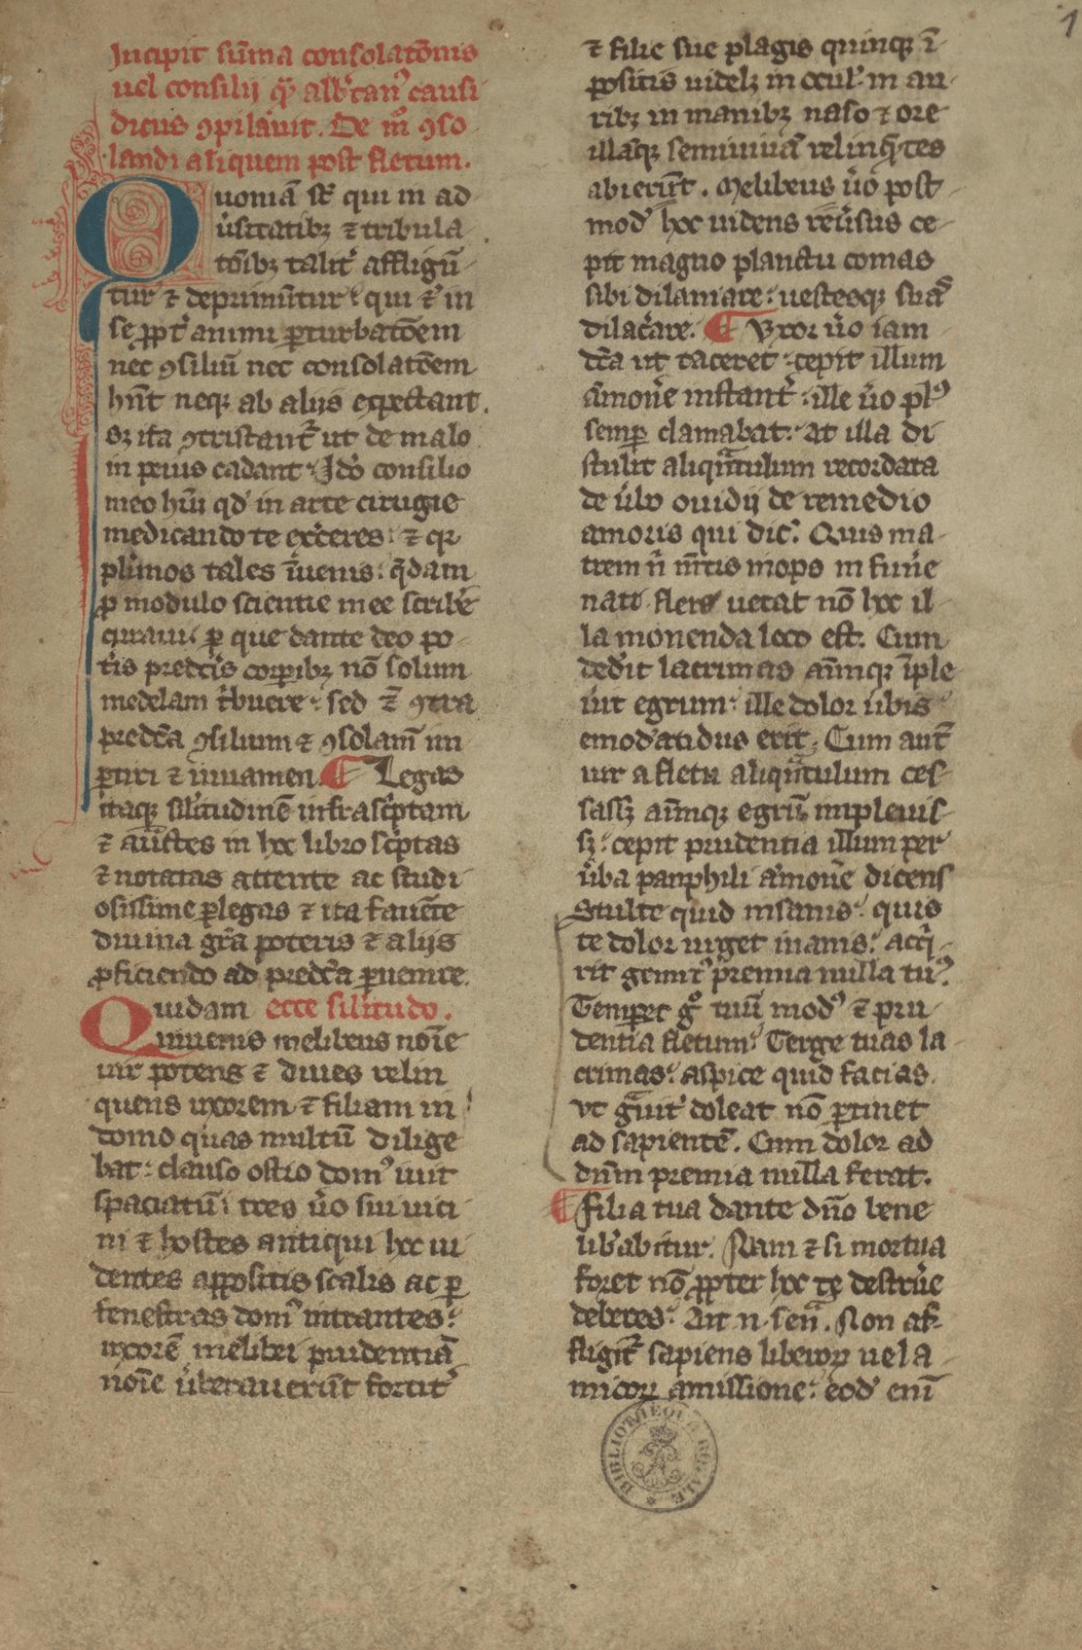 1
Incipit sūma consolatōnis
uel consilij qȝ alb'tan9 causi
dicus ꝯpilauit. De mō ꝯso
landi aliquem post fletum.
Quoniā st̄ qui in ad
u'sitatibȝ ⁊ tribula
tōibȝ talit' affligū
tur ⁊ deprimūtur qui ⁊ in
se ꝓpt' animi ꝑturbatōem
nec ꝯsiliū nec consolatōem
hn̄t neqȝ ab alijs expectant.
sȝ ita ꝯtristant' ut de malo
in peius cadant. Ido' consilio
meo
qd' in arte cirugie
medicando te ex'ceres ⁊ qȝ
pl'imos tales īuenis q̄dam
ꝓ modulo scientie mee scrib'e
curaui ꝑ que dante deo po
t'is predc̄is corꝑibȝ nō solum
medelam t'buere sed ⁊ ꝯtra
predc̄a ꝯsilium ⁊ ꝯsolam̄ im
ꝑtiri ⁊ iuuamen. ¶ Legas
itaqȝ sil'itudinē infrasc'ptam
⁊ auc̄tes in hoc libro sc'ptas
⁊ notatas attente ac studi
osissime ꝑlegas ⁊ ita fauēte
diuina gr̄a poteris ⁊ alijs
ꝓficiendo ad predc̄a ꝑuenire.
Quidam ecce silitudo.
iuuenis melibeus noīe
uir potens ⁊ diues relin
quens uxorem ⁊ filiam in
domo quas multū dilige
bat: clauso ostio dom9 iuit
spaciatū tres ūo sui uici
ni ⁊ hostes antiqui hoc ui
dentes appositis scalis ac ꝑ
fenestras dom9 intrantes:
uxorē melibei prudentiā
noīe ūberauerūt fortit'
⁊ filie sue plagis quinqȝ ī
positis uidelȝ in ocul' in au
ribȝ in manibȝ naso ⁊ ore
illāqȝ seminiuā relinq̄tes
abierūt. Melibeus ūo post
mod' hoc uidens reūsus ce
pit magno planctu comas
sibi dilaniare: uestesqȝ suas
dilac'are. ¶ Vxor ūo iam
dc̄a ut taceret cepit illum
āmonē instant' ille ūo pl9
semꝑ clamabat: at illa di
stulit aliqᵃntulum recordata
de ūbo ouidij de remedio
amoris qui dic: Quis ma
trem n̄ m̄tis inops in fun'e
nati flere uetat nō hoc il
la monenda loco est. Cum
ded'it lacrimas aīmqȝ īple
u'it egrum: ille dolor ūbis
emod'atidus erit. Cum aut̄
uir a fletu aliqᵃntulum ces
sassȝ aīmqȝ egrū impleuis
sȝ: cepit prudentia illum per
ūba panphili āmonē dicens
Stulte quid insanis: quis
te dolor urget inanis: acq̄
rit gemit9 premia nulla tu9
Temperet g° tuū mod9 ⁊ pru
dentia fletum: Terge tuas la
crimas: aspice quid facias.
Vt gᵃuit' doleat nō ꝑtinet
ad sapientē. Cum dolor ad
dnm̄ premia nulla ferat.
¶ Filia tua dante dn̄o bene
lib'abitur. Nam ⁊ si mortua
foret nō ꝓpter hoc te destrūe
deberes: Ait n. sen̄. Non af
fligit' sapiens liberoꝝ uel a
micoꝝ amissione: eod' enī
BIBLIOTHEQUE ROYALE